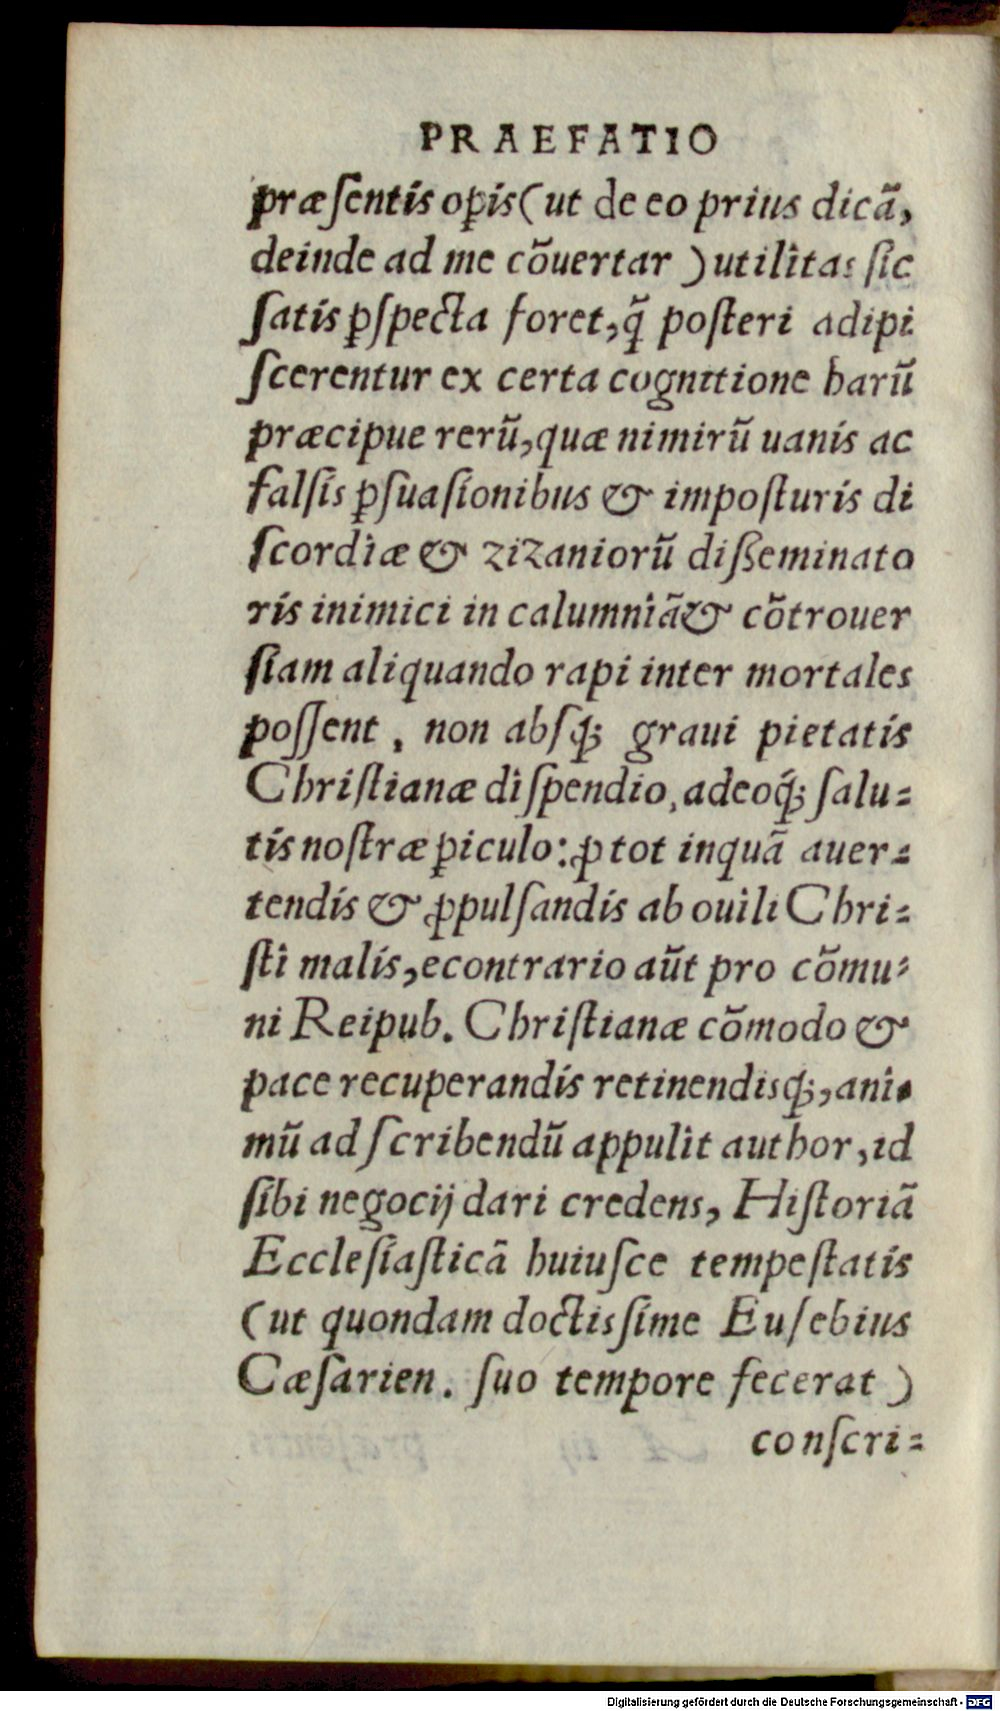 PRAEFATIO
præſentis op̱is (ut de eo prius dicã,
deinde ad me cõuertar) utilitas ſic
ſatis p̱ſpecta foret, q̃ poſteri adipi
ſcerentur ex certa cognitione harũ
præcipue rerũ, quæ nimirũ uanis ac
falſis p̱ſuaſionibus & impoſturis di
ſcordiæ & zizaniorũ diſſeminato
ris inimici in calumniã & cõtrouer
ſiam aliquando rapi inter mortales
poſſent, non abſq; graui pietatis
Chriſtianæ diſpendio, adeoq́; ſalu-
tis noſtræ p̱iculo: ꝓ tot inquã auer-
tendis & ꝓpulſandis ab ouili Chri-
ſti malis, econtrario aũt pro cõmu-
ni Reipub. Chriſtianæ cõmodo &
pace recuperandis retinendisq́;, ani-
mũ ad ſcribendũ appulit author, id
ſibi negocij dari credens, Hiſtoriã
Eccleſiaſticã huiuſce tempeſtatis
(ut quondam doctisſime Euſebius
Cæſarien. ſuo tempore fecerat)
conſcri-
Digitalisierung gefördert durch die Deutsche Forschungsgemeinschaft - DFG